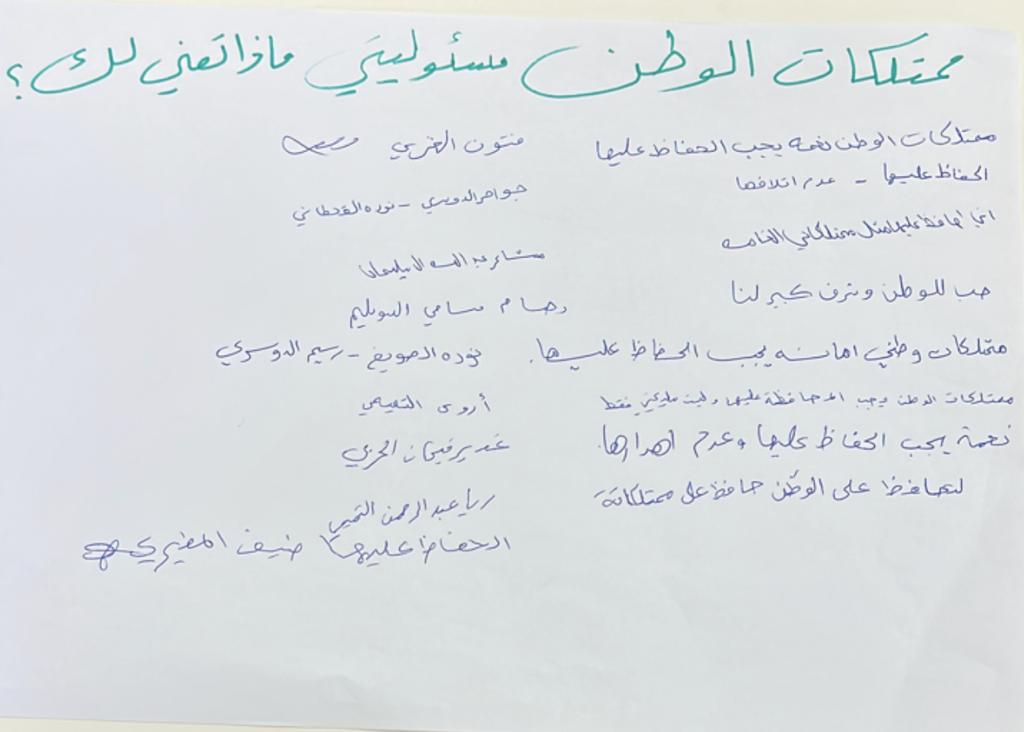 ممتلكات الوطن مسئوليتي ماذا تعني لك ؟
ممتلكات الوطن نعمه يجب الحفاظ عليها فتون الحربي
الحفاظ عليها - عدم اتلافها جواهر الدوسري - نوره القحطاني
اني احافظ عليها مثل ممتلكاتي الخاصه مشاعر عبدالله السليمان
حب للوطن وشرف كبير لنا رهام سامي السويلم
ممتلكات وطني امانه يجب الحفاظ عليها. نوره الصويغ - ريم الدوسري
ممتلكات الوطن يجب المحافظة عليها وليست فقط أروى التميمي
نعمة يجب الحفاظ عليها وعدم اهدارها. غدير الحربي
لتحافظ على الوطن حافظ على ممتلكاته ريما عبدالرحمن
الحفاظ عليها ضيف المطيري